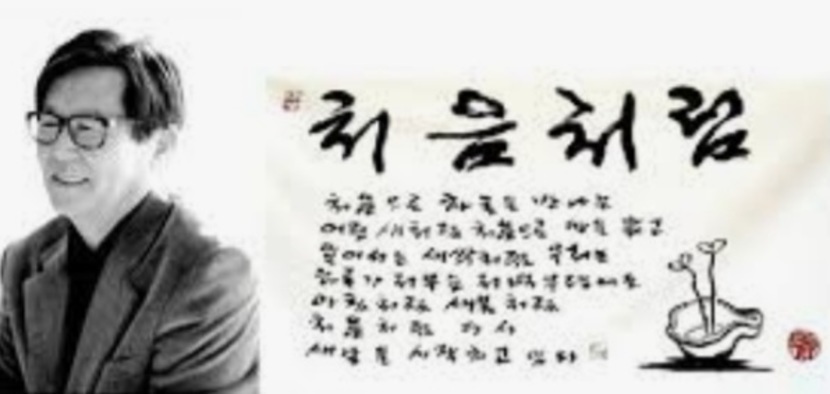 처음처럼
처음으로 하늘을 만나는
어린 새처럼 처음으로 땅을 밟고
일어서는 새싹처럼 우리는
하루가 저무는 저녁 무렵에도
아침처럼 새봄처럼
처음처럼 다시
새날을 시작하고 있다